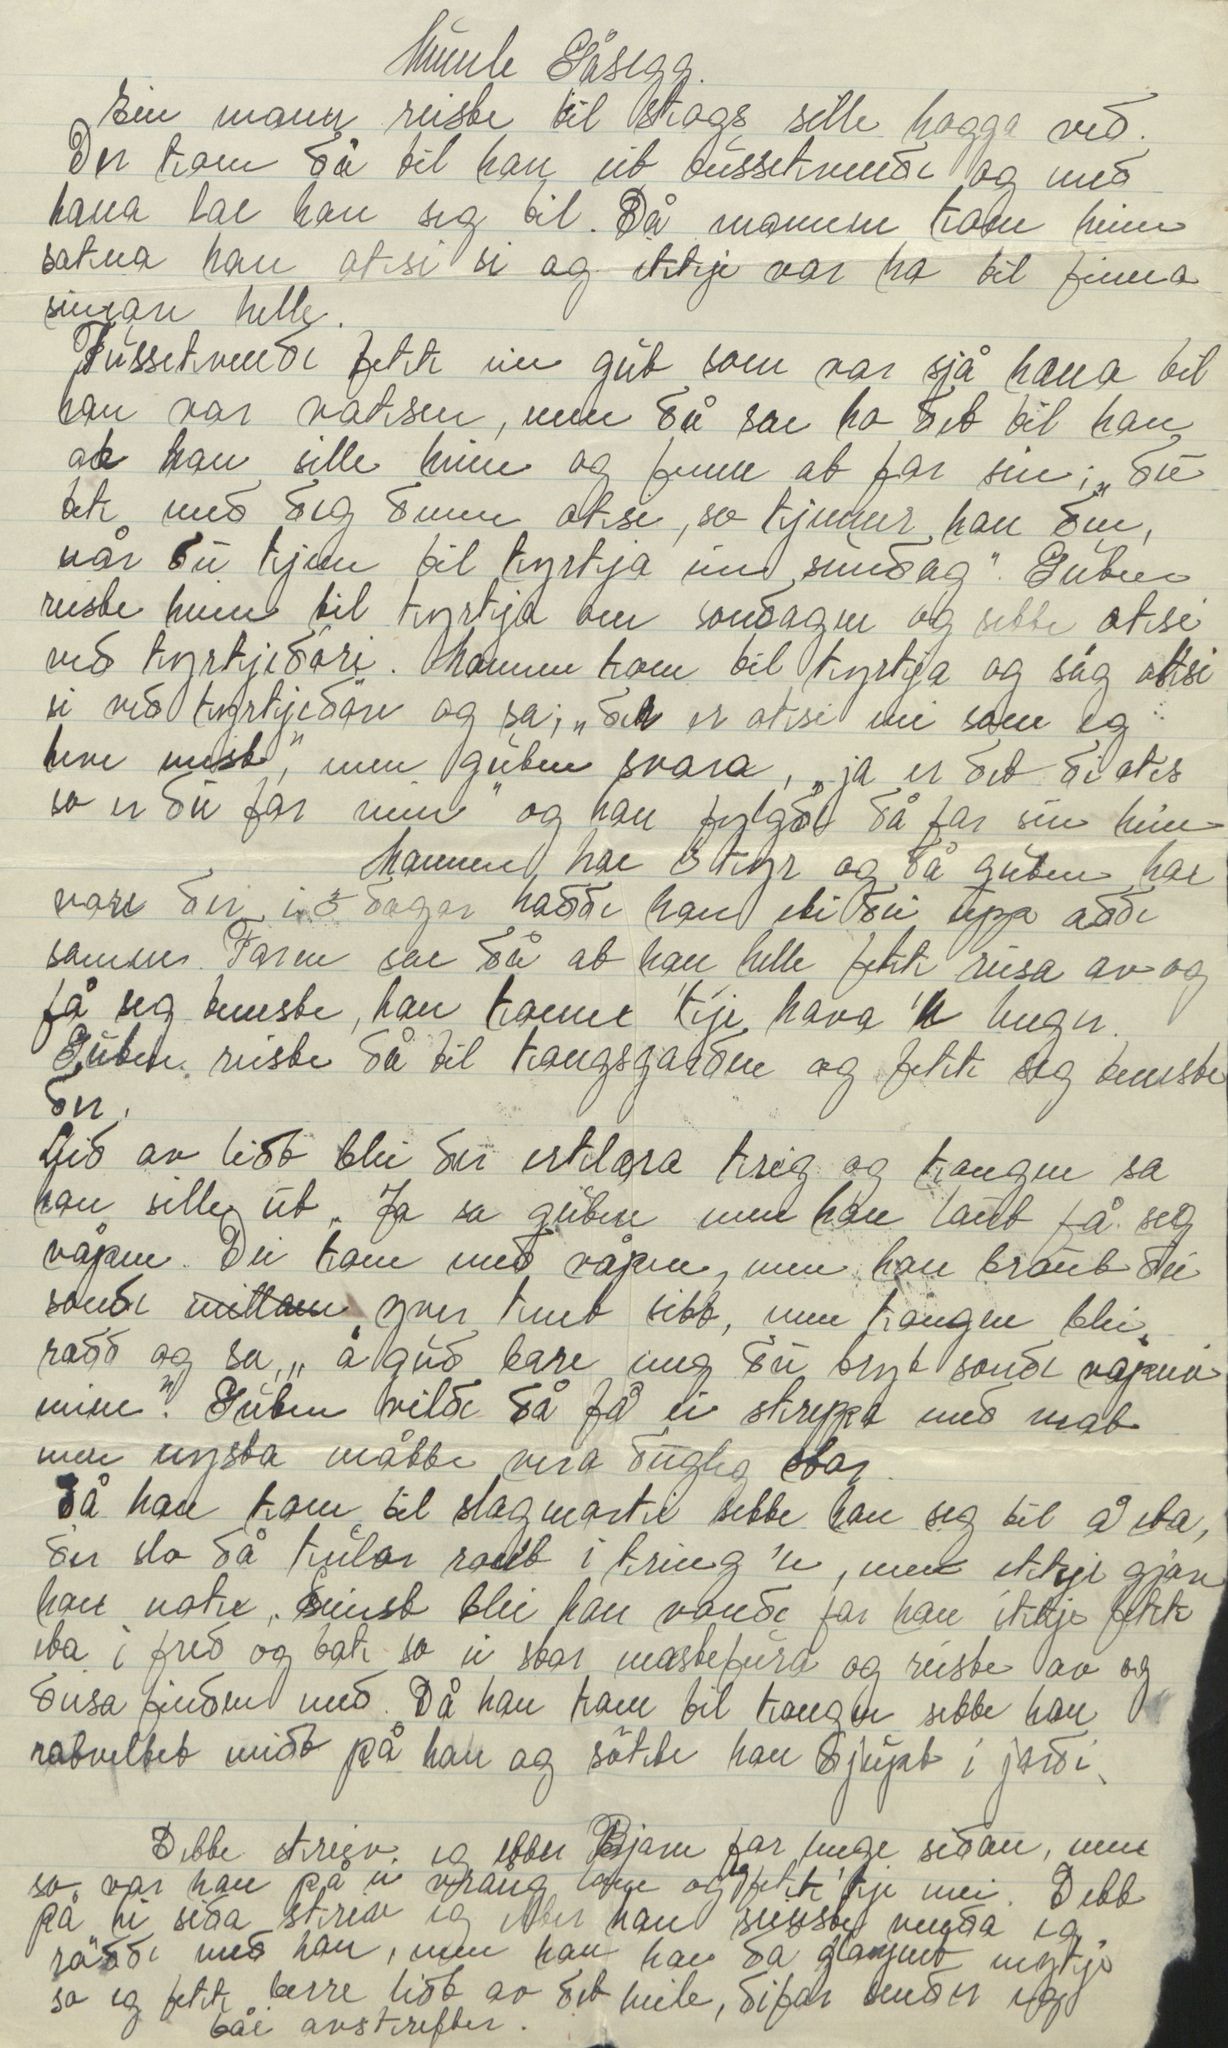 Mumle Gåsegg.
Ein mann reiste til skogs sille hogga ved.
Der kom då til han eit tussekvende og med
hana lae han seg til. Då mannen kom heim
sakna han øksi si og ikkje var ho til finna
sinean helle.
Tussekvende fekk ein gut som var sjå hana til
han var vaksen, men då sae ho det til han
at han sille heim og finne at far sin; "du
tek med deg denne øksi, so kjenner han den,
når du kjem til kyrkja ein sundag". Guten
reiste heim til kyrkja om sondagen og sette øksi
ved kyrkjedøri. Mannen kom til kyrkja og såg øksi
si ved kyrkjedøre og sa; "der er øksi mi som eg
heve mist", men guten svara, "ja er det di øks
so er du far min" og han fylgde då far sin heim
Mannen hae 3 kyr og då guten hae
vore der i 3 dagar hadde han eti dei upp adde
saman. Faren sae då at han helle fekk reisa av og
få seg teneste, han konne 'kje hava 'n lenger.
Guten reiste då til kongsgarden og fekk seg teneste
der.
Lid av lidt blei der erklæra krig og kongen sa
han sille ut. Ja sa guten men han laut få seg
våpen. Dei kom med våpen, men han braut dei
sonde yver kneet sitt, men kongen blei
rædd og sa, "å gud bare meg du bryt sonde våpni
mine". Guten vilde då få ei skreppe med mat
men nysta måtte vera dugleg stor.
Då han kom til slagmarki sette han seg til å eta,
der slo då kulor rout i kring 'n, men ikkje gjøre
han noke, seinst blei han vonde for han ikkje fekk
eta i fred og tok so ei stor mastefura og reiste av og
dusa fienden med. Då han kom til kongen sette han
rotveltet midt på han og søkte han djupt i jordi.
Dette skreiv eg etter Bjarn for lenge sidan, men
so var han på ei vrång leie og eg fekk 'kje mei. Dett
på hi sida skrev eg etter han seinste venda eg
rødde med han, men han hae då gløymt mykje
so eg fekk berre lidt av det heile, difor sender eg
båe avskrifter.